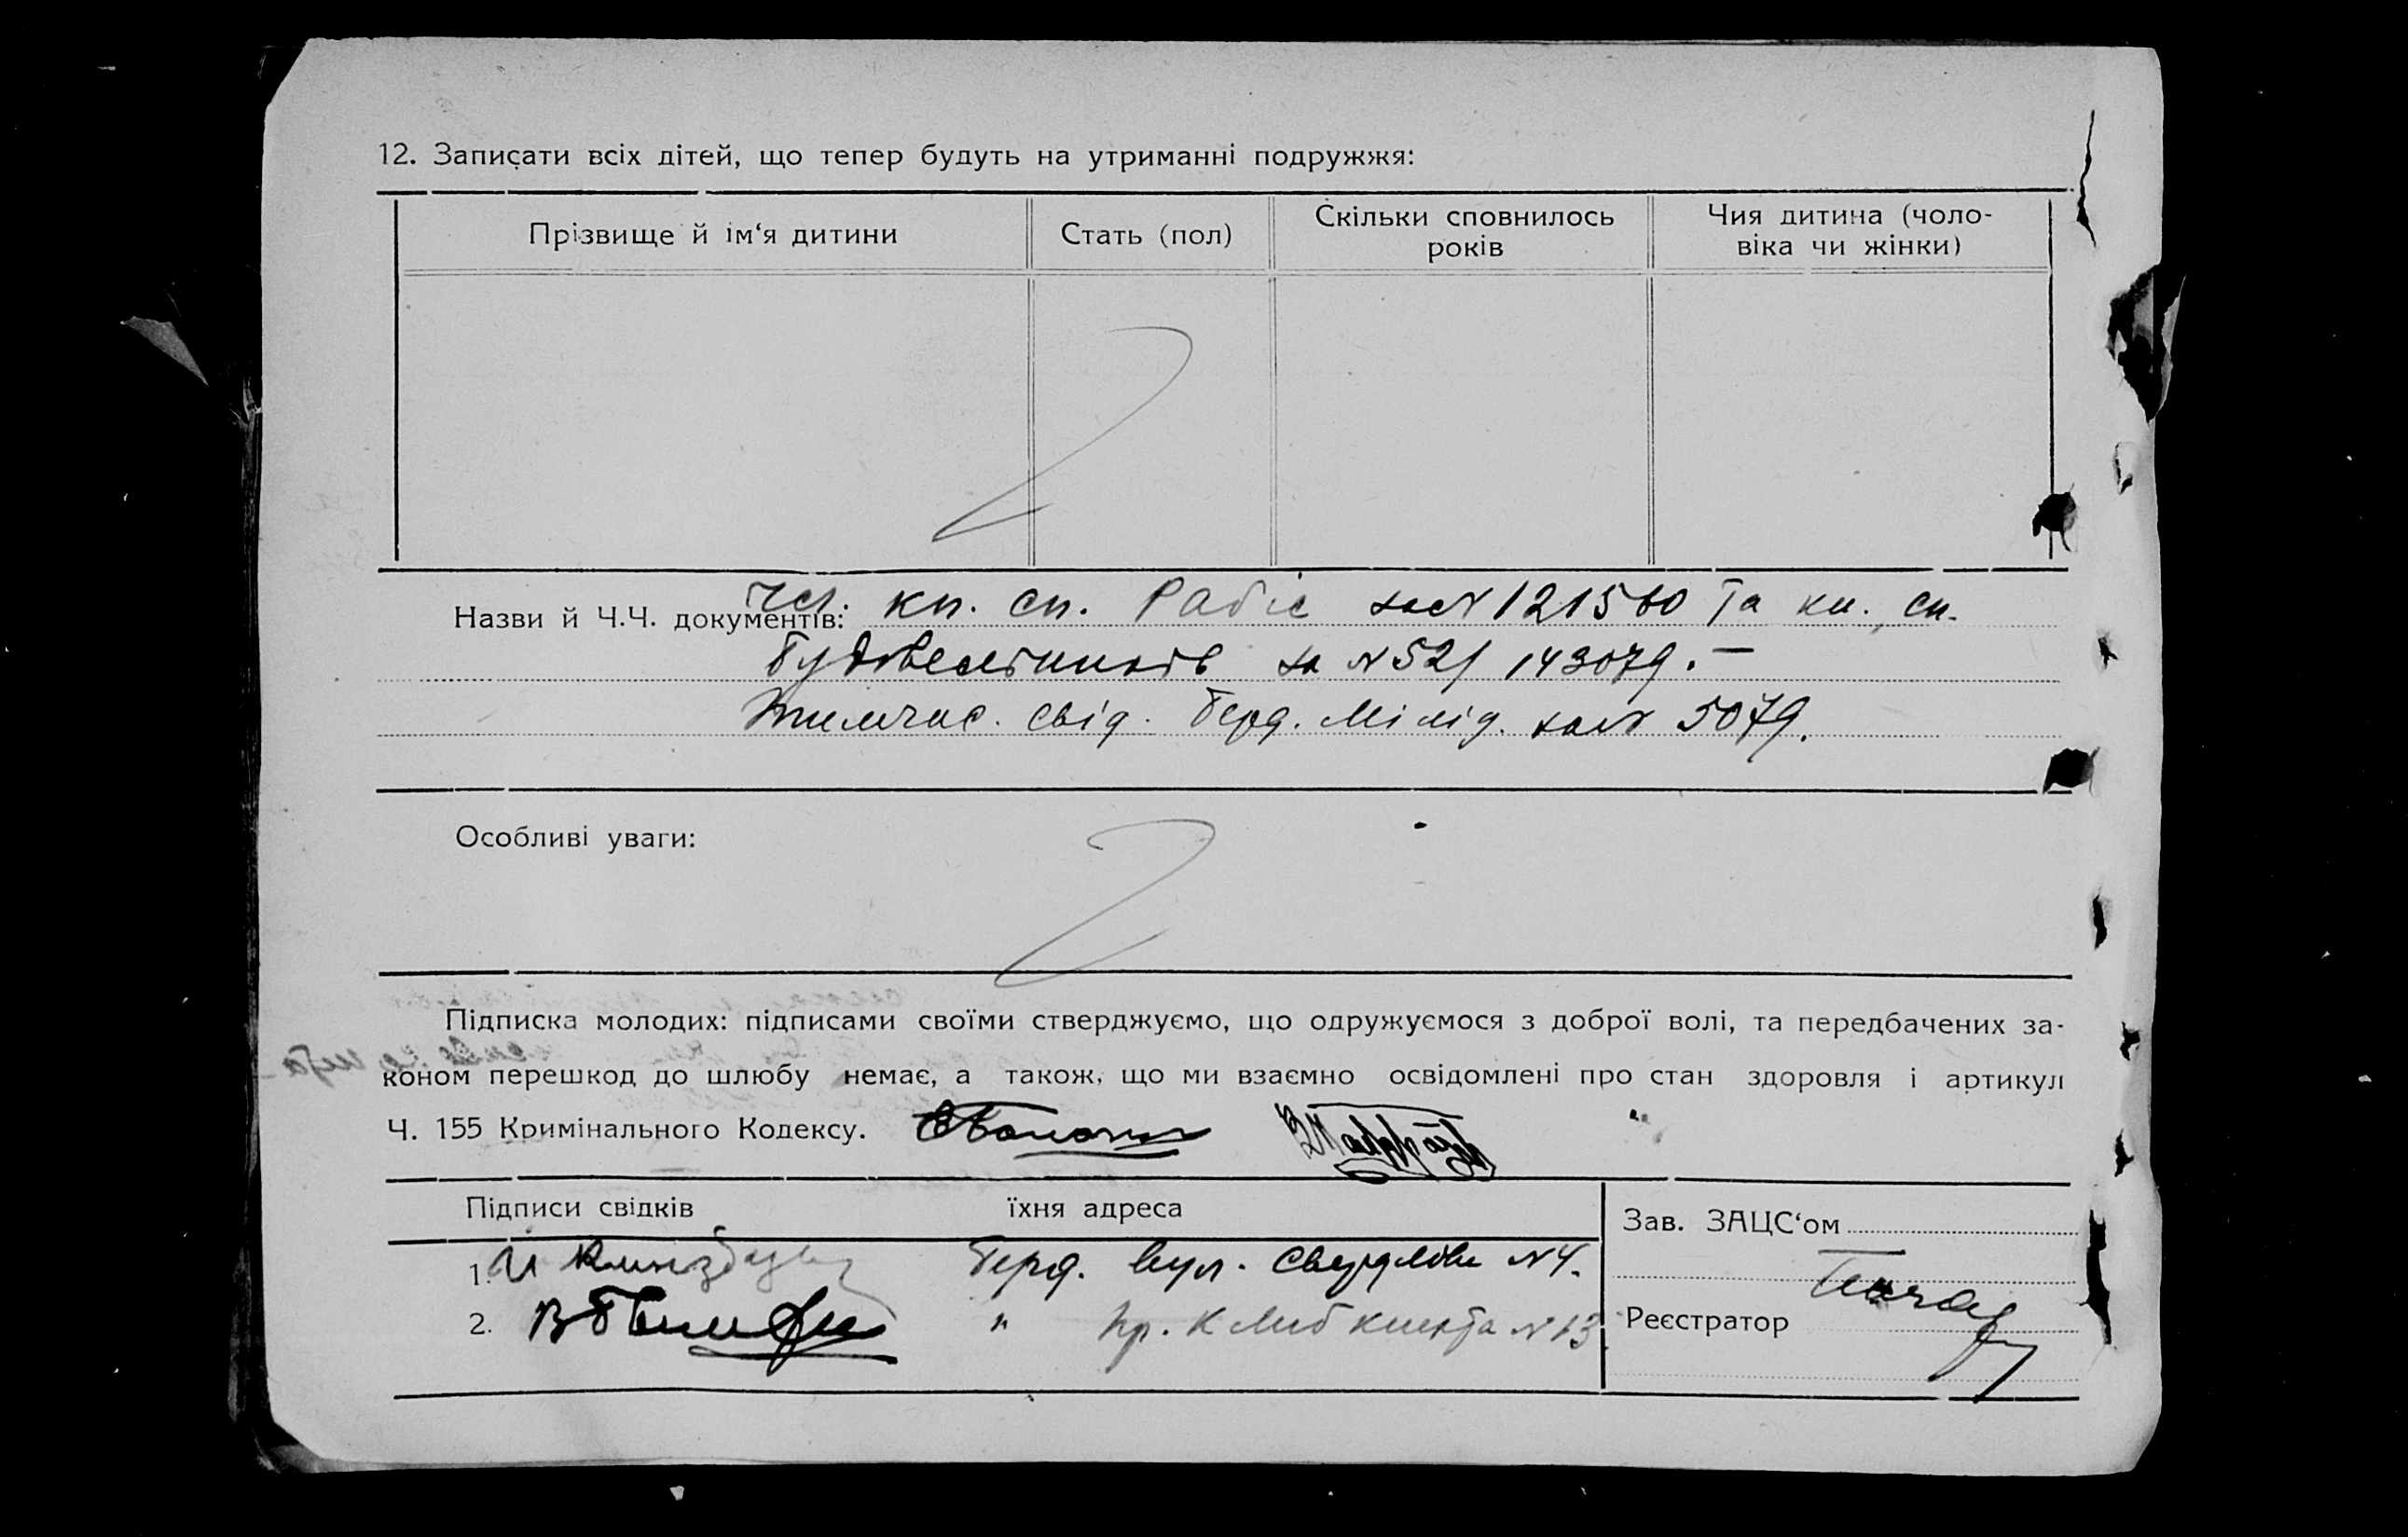 12. Записати всіх дітей, що тепер будуть на утриманні подружжя:
Прізвище й ім‘я дитини
Стать (пол)
Скільки сповнилось
років
Чия дитина (чоло-
віка чи жінки)
Назви й Ч.Ч. документів: Чл. кн. сп. Рабіс за № 121560 та кн. сп.
будівельників за № 521 143079. —
Тимчас. свід. Берд. Міліц. за № 5079.
Особливі уваги:
Підписка молодих: підписами своїми стверджуємо, що одружуємося з доброї волі, та передбачених за-
коном перешкод до шлюбу немає, а також, що ми взаємно освідомлені про стан здоровля і артикул
Ч. 155 Кримінального Кодексу.
Підписи свідків їхня адреса
Зав. ЗАЦС‘ом
1. Берд. вул. Свердлова № 4.
2. " пр. К Лібкнехта № 13
Реєстратор